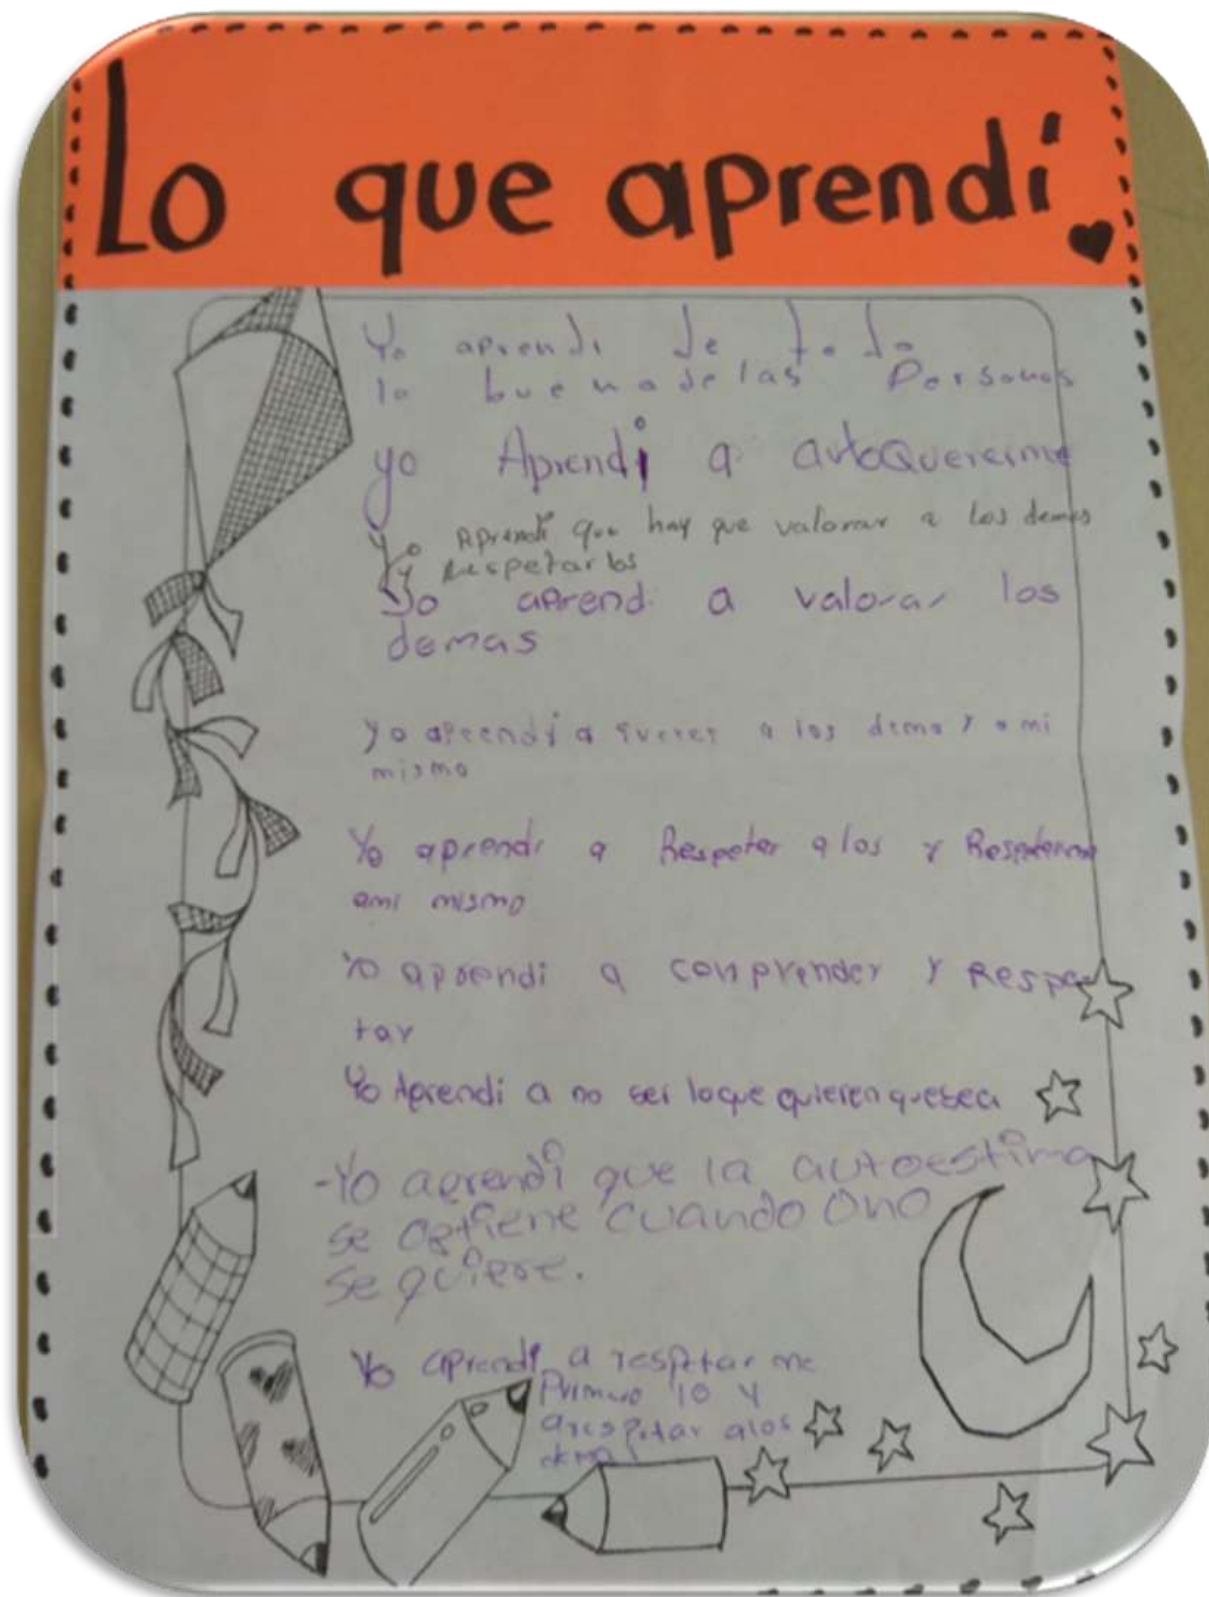 Lo que aprendí
Yo aprendi de todo
lo bueno de las Personas
yo Aprendi a autoQuererme
Yo Aprendí que hay que valorar a los demas
y Respetarlos
yo aprendi a valorar los
demas
yo aprendi a querer a los demas y a mi
mismo
Yo aprendi a Respetar a los y Respetarme
ami mismo
Yo aprendi a conprender y Respe
tar
Yo Aprendi a no ser loque quieren quesea
-Yo aprendí que la autoestima
se obtiene cuando Uno
se quiere.
Yo aprendí a respetar me
Primero yo y
arespetar alos
demas